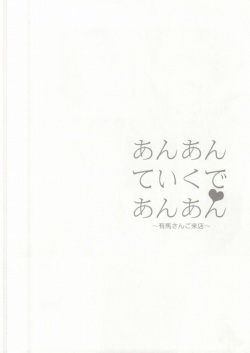 あんあん
ていくで
あんあん
～有馬さんご来店～